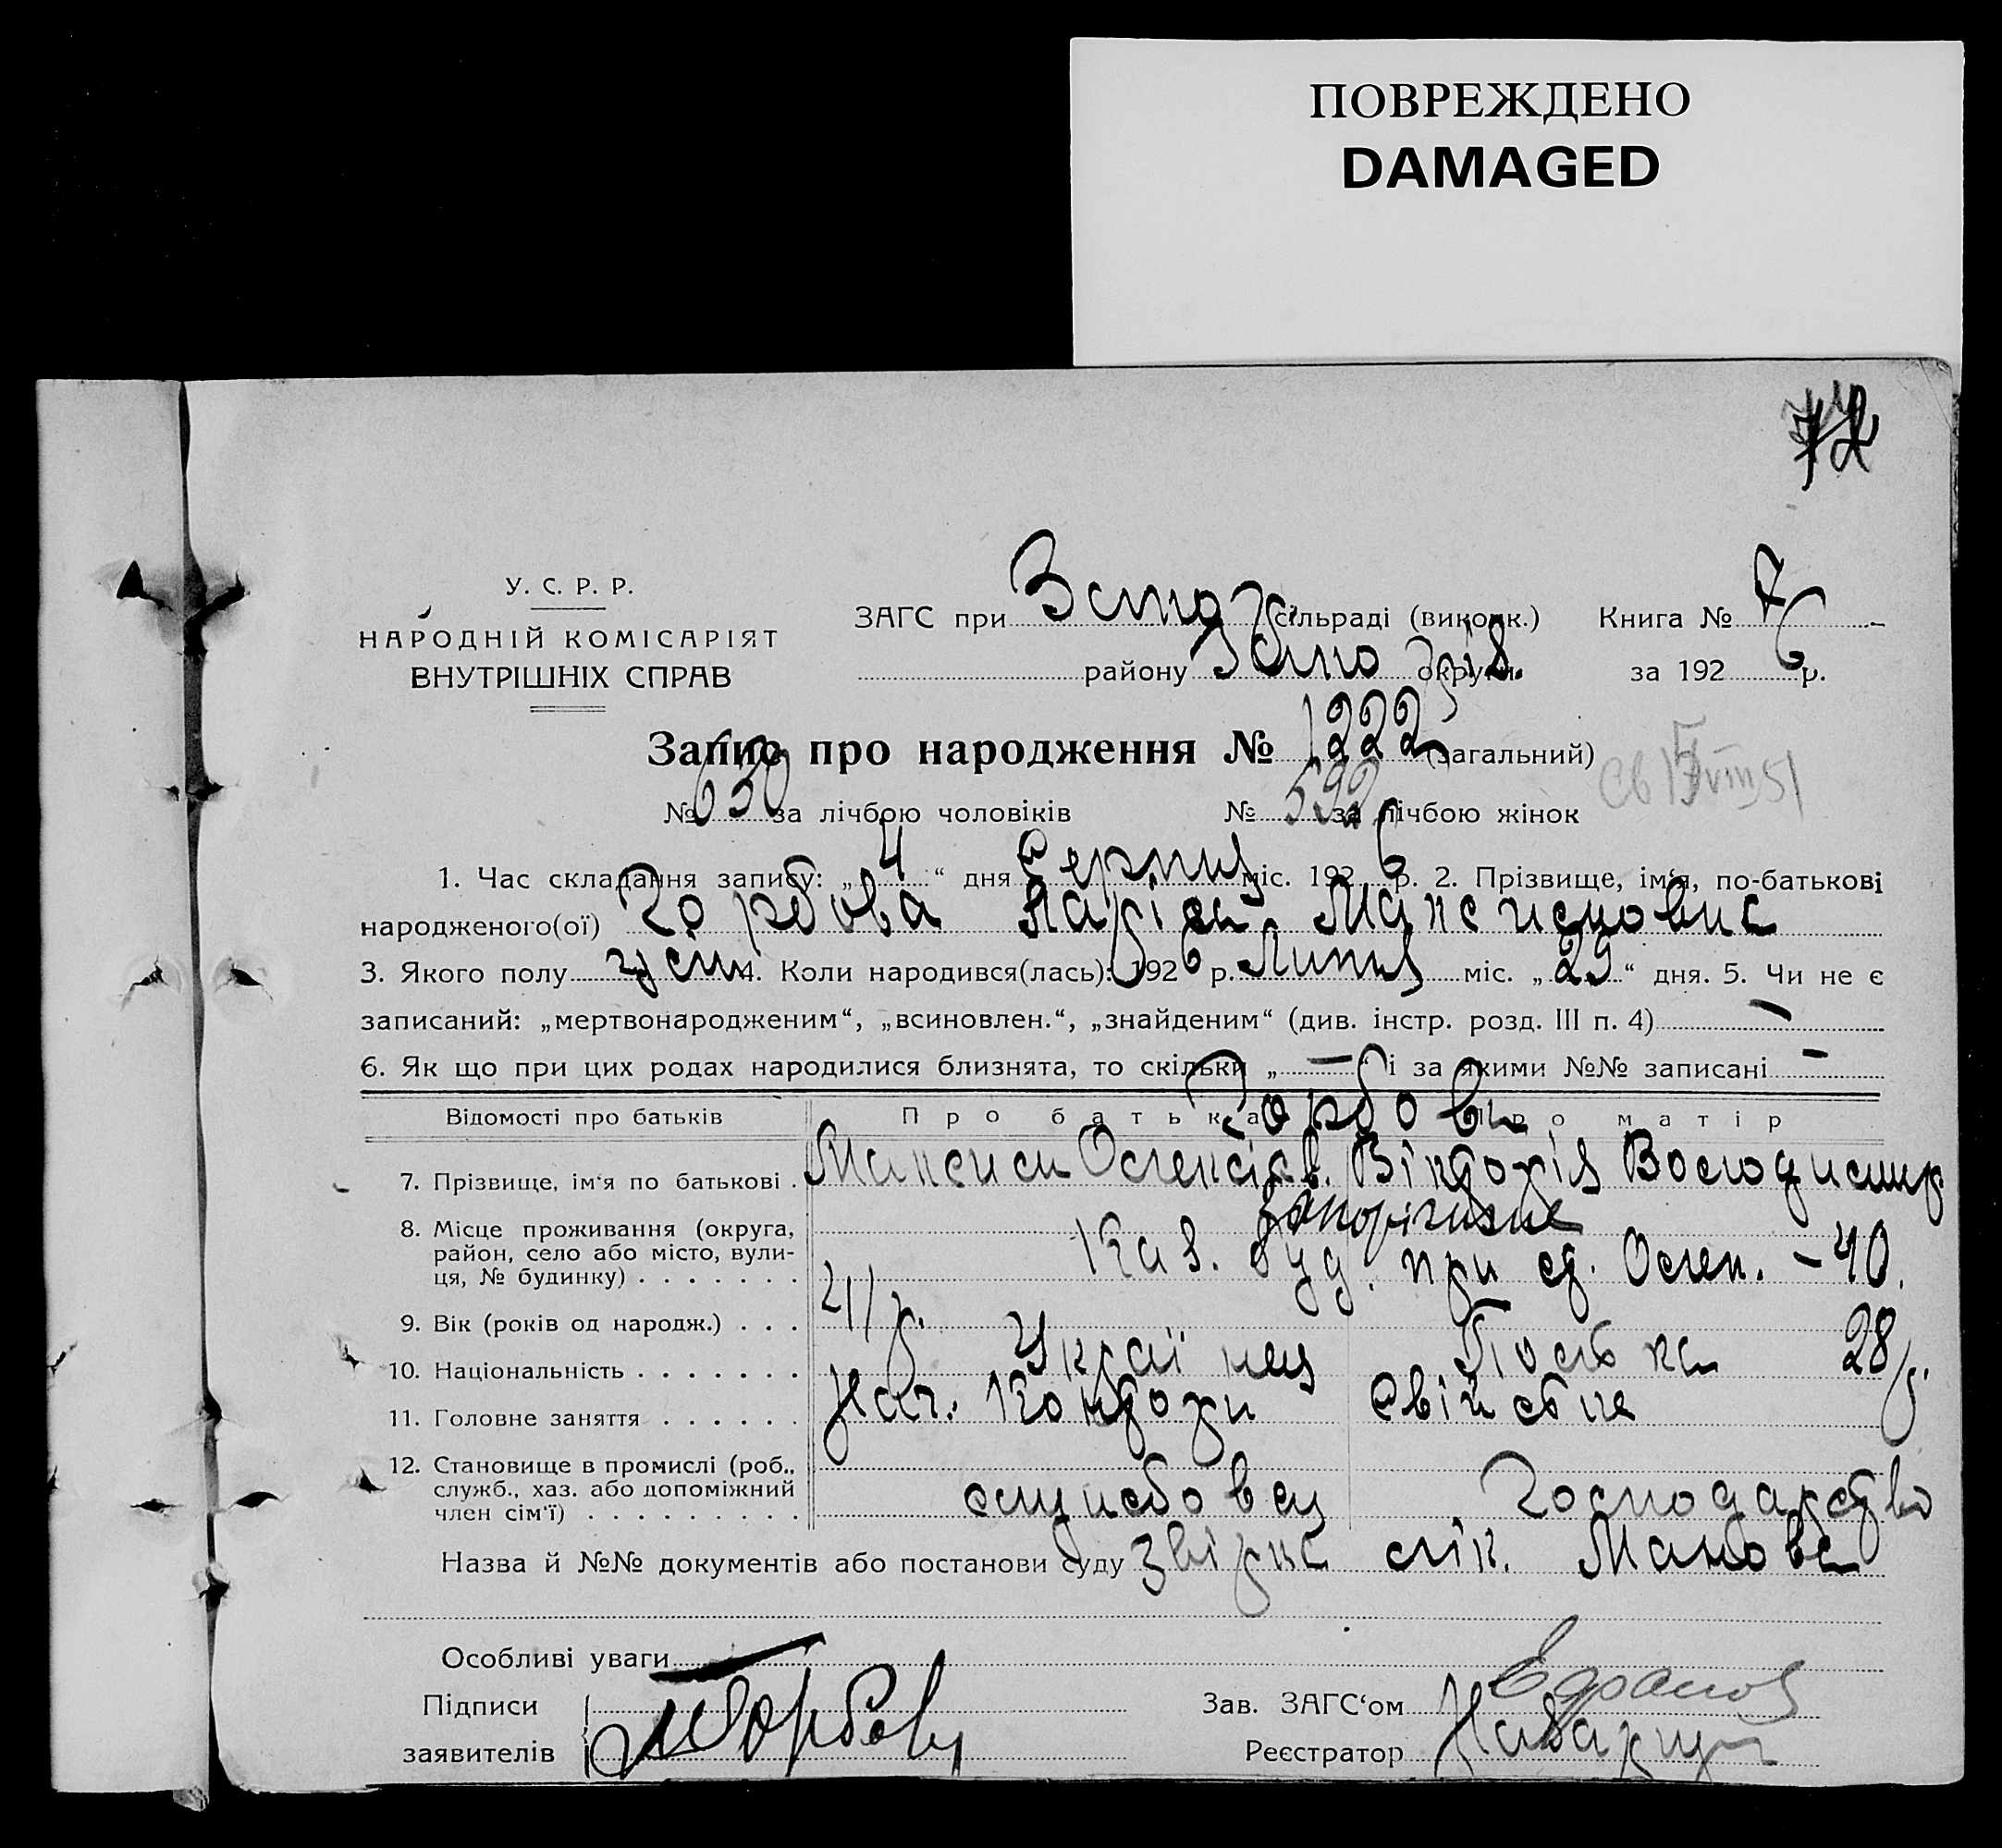 ПОВРЕЖДЕНО
DAMAGED
У. С. Р. Р.
НАРОДНІЙ КОМІСАРІЯТ
ВНУТРІШНІХ СПРАВ
ЗАГС при сільраді (виконк.) Книга № 7
району округи за 1926 р.
Запис про народження № 1222 (загальний)
№ 630 за лічбою чоловіків № 592 за лічбою жінок
1. Час складання запису: „4“ дня Серпня міс. 1926 р. 2. Прізвище, ім‘я, по-батькові
народженого(ої) Горбова Лариса Максимовна
3. Якого полу жін 4. Коли народився(лась): 1926 р. Липня міс. „29“ дня. 5. Чи не є
записаний: „мертвонародженим“, „всиновлен.“, „знайденим“ (див. інстр. розд. III п. 4) —
6. Як що при цих родах народилися близнята, то скільки „—“ і за якими №№ записані —
Відомості про батьків Про батька Про матір
Горбов
7. Прізвище, ім‘я по батькові . Максим Олексієв. Вікторія Володимир
8. Місце проживання (округа, Запоріжжє
район, село або місто, вули- Каз. буд. при ст. Олек. – 40.
ця, № будинку) . . . . . . .
9. Вік (років од народж.) . . . 28 р.
10. Національність . . . . . . . Українец Полька
11. Головне заняття . . . . . . Нач. Конторы Свійстне
12. Становище в промислі (роб.,
служб., хаз. або допоміжний службовец Господарство
член сім‘ї) . . . . . . . . .
Назва й №№ документів або постанови суду лік. Манова
Особливі уваги
Підписи
Зав. ЗАГС‘ом
заявителів МГорбов
Реєстратор